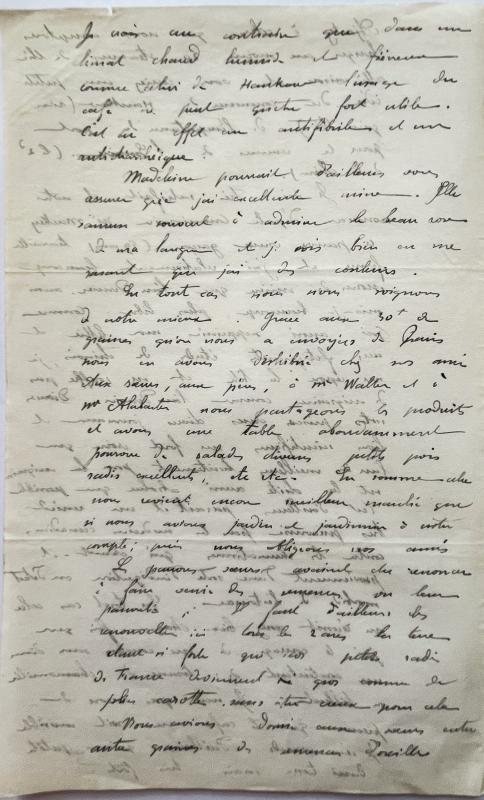 Je crois au contraire que dans un
climat chaud humide et fiévreux
comme celui de Hankeou l'usage du
café peut être fort utile.
C'est en effet un antifibrile et un
antidiarrhéique.
Madeleine pourrait d'ailleurs vous
assurer que j'ai excellente mine. Elle
souvent à admirer le beau rose
de ma langue et je vois bien en me
rasant que j'ai des couleurs.
En tout cas nous nous soignons
à notre mieux. Grâce aux 30 f de
graines qu'on nous a envoyées de Paris
nous en avons distribué chez nos amis
aux sœurs, aux pères, à Mr Walter et à
Mr nous partageons les produits
et avons une table abondamment
pourvue de salades diverses petits pois
radis excellents, etc etc. En somme cela
nous revient encore meilleur marché que
si nous avions jardin et jardinier à notre
compte; puis nous obligeons nos amis
Les pauvres sœurs avaient dû renoncer
à faire venir des semences vu leur
pauvreté; il faut d'ailleurs les
renouveler ici tous les 2 ans. La terre
étant si forte que vos petits radis
de France deviennent gros comme de
jolies carottes sans être creux pour cela
Nous avions donné aux sœurs entre
autres graines des semences d'oseille